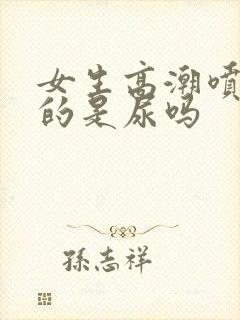 女生高潮噴
的是尿吗
孫志祥